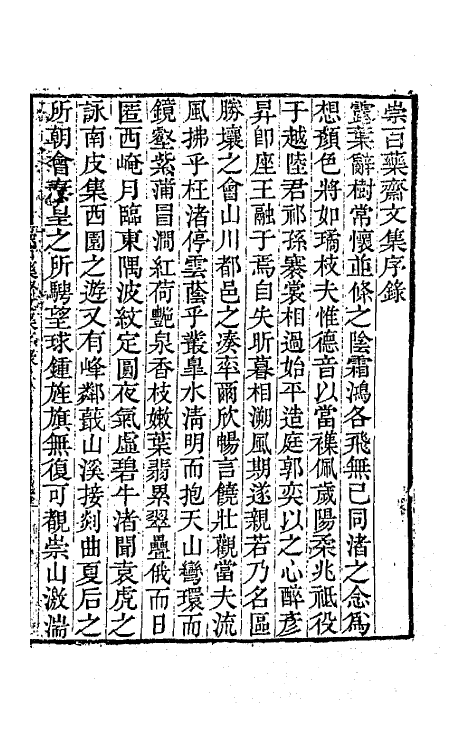 崇百藥齋文集序錄
靈葉辭樹常懷並條之陰霜鴻各飛無已同渚之念爲
想顏色將如璚枝夫惟德音以當襍佩歲陽柔兆祗役
于越陸君祁孫褰裳相過始平造庭郭奕以之心醉彥
昇卽座王融于焉自失昕暮相溯風期遂親若乃名區
勝壤之會山川都邑之湊率爾欣暢言饒壯觀當夫流
風拂乎枉渚停雲蔭乎叢皐水淸明而抱天山彎環而
鏡壑紫蒲冒澗紅荷豔泉香枝嫩葉翡累翠疊俄而日
匿西崦月臨東隅波紋定圓夜氣虛碧牛渚聞袁虎之
詠南皮集西園之遊又有峰鄰蕺山溪接剡曲夏后之
所朝會秦皇之所騁望球鍾旌旗無復可觀崇山激湍